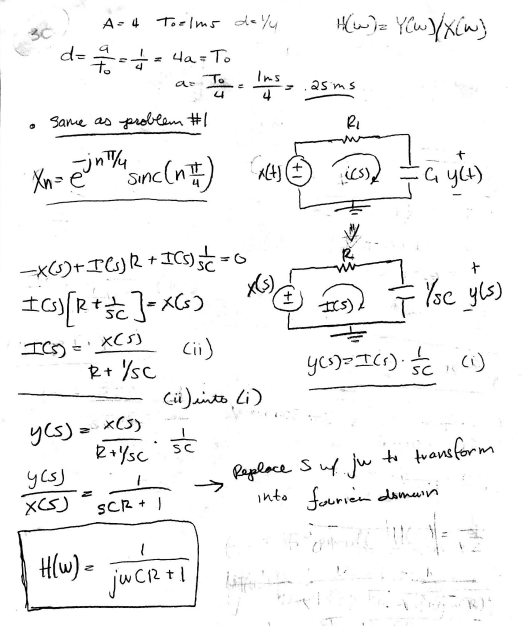 3C
A = 4 T₀ = 1ms d = 1/4 H(ω) = Y(ω)/X(ω)
d = a/T₀ = 1/4 = 4a = T₀
a = T₀/4 = 1ms/4 = .25ms
• Same as problem #1
Xn = e^(-jnπ/4) sinc(nπ/4)
R₁
x(t) + - i(s) C₁ + y(t) -
-X(s) + I(s)R + I(s) 1/sC = 0
R
X(s) + - I(s) 1/sC + y(s) -
I(s)[R + 1/sC] = X(s)
I(s) = X(s)/(R + 1/sC) (ii)
y(s) = I(s) · 1/sC (i)
(ii) into (i)
y(s) = X(s)/(R + 1/sC) · 1/sC
y(s)/X(s) = 1/(sCR + 1) → Replace S w/ jω to transform
into fourier domain
H(ω) = 1/(jωCR + 1)